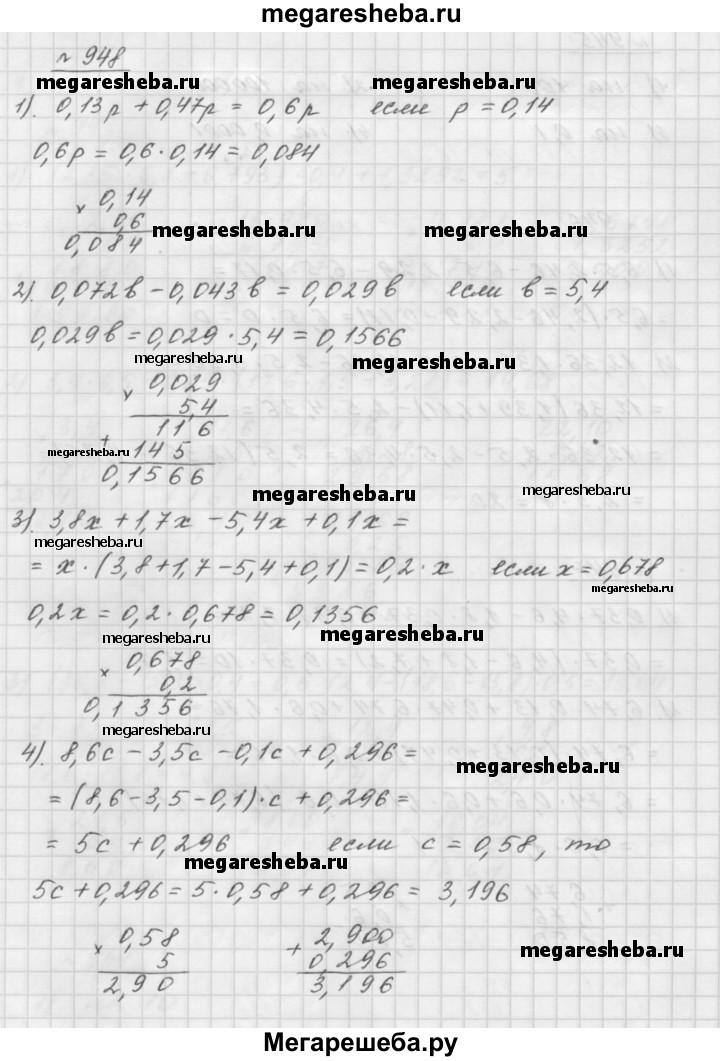 megaresheba.ru
№ 948
megaresheba.ru megaresheba.ru
1). 0,13p + 0,47p = 0,6p если p = 0,14
0,6p = 0,6 · 0,14 = 0,084
× 0,14
0,6
megaresheba.ru megaresheba.ru
0,084
2). 0,072в − 0,043в = 0,029в если в = 5,4
0,029в = 0,029 · 5,4 = 0,1566
megaresheba.ru megaresheba.ru
× 0,029
5,4
116
megaresheba.ru + 145
0,1566
megaresheba.ru megaresheba.ru
3). 3,8x + 1,7x − 5,4x + 0,1x =
megaresheba.ru
= x · (3,8 + 1,7 − 5,4 + 0,1) = 0,2 · x если x = 0,678
megaresheba.ru
0,2x = 0,2 · 0,678 = 0,1356
megaresheba.ru megaresheba.ru
× 0,678
0,2
0,1356
megaresheba.ru
4). 8,6c − 3,5c − 0,1c + 0,296 =
megaresheba.ru
= (8,6 − 3,5 − 0,1) · c + 0,296 =
= 5c + 0,296 если c = 0,58, то
megaresheba.ru
5c + 0,296 = 5 · 0,58 + 0,296 = 3,196
× 0,58 + 2,900
5 0,296
megaresheba.ru
2,90 3,196
Мегарешеба.ру